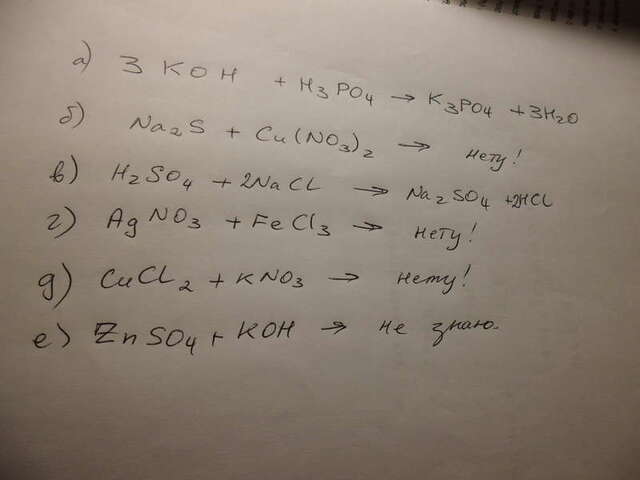 а) 3 KOH + H3PO4 → K3PO4 + 3H2O
б) Na2S + Cu(NO3)2 → нету!
в) H2SO4 + 2NaCl → Na2SO4 + 2HCl
г) AgNO3 + FeCl3 → нету!
д) CuCl2 + KNO3 → нету!
е) ZnSO4 + KOH → не знаю.